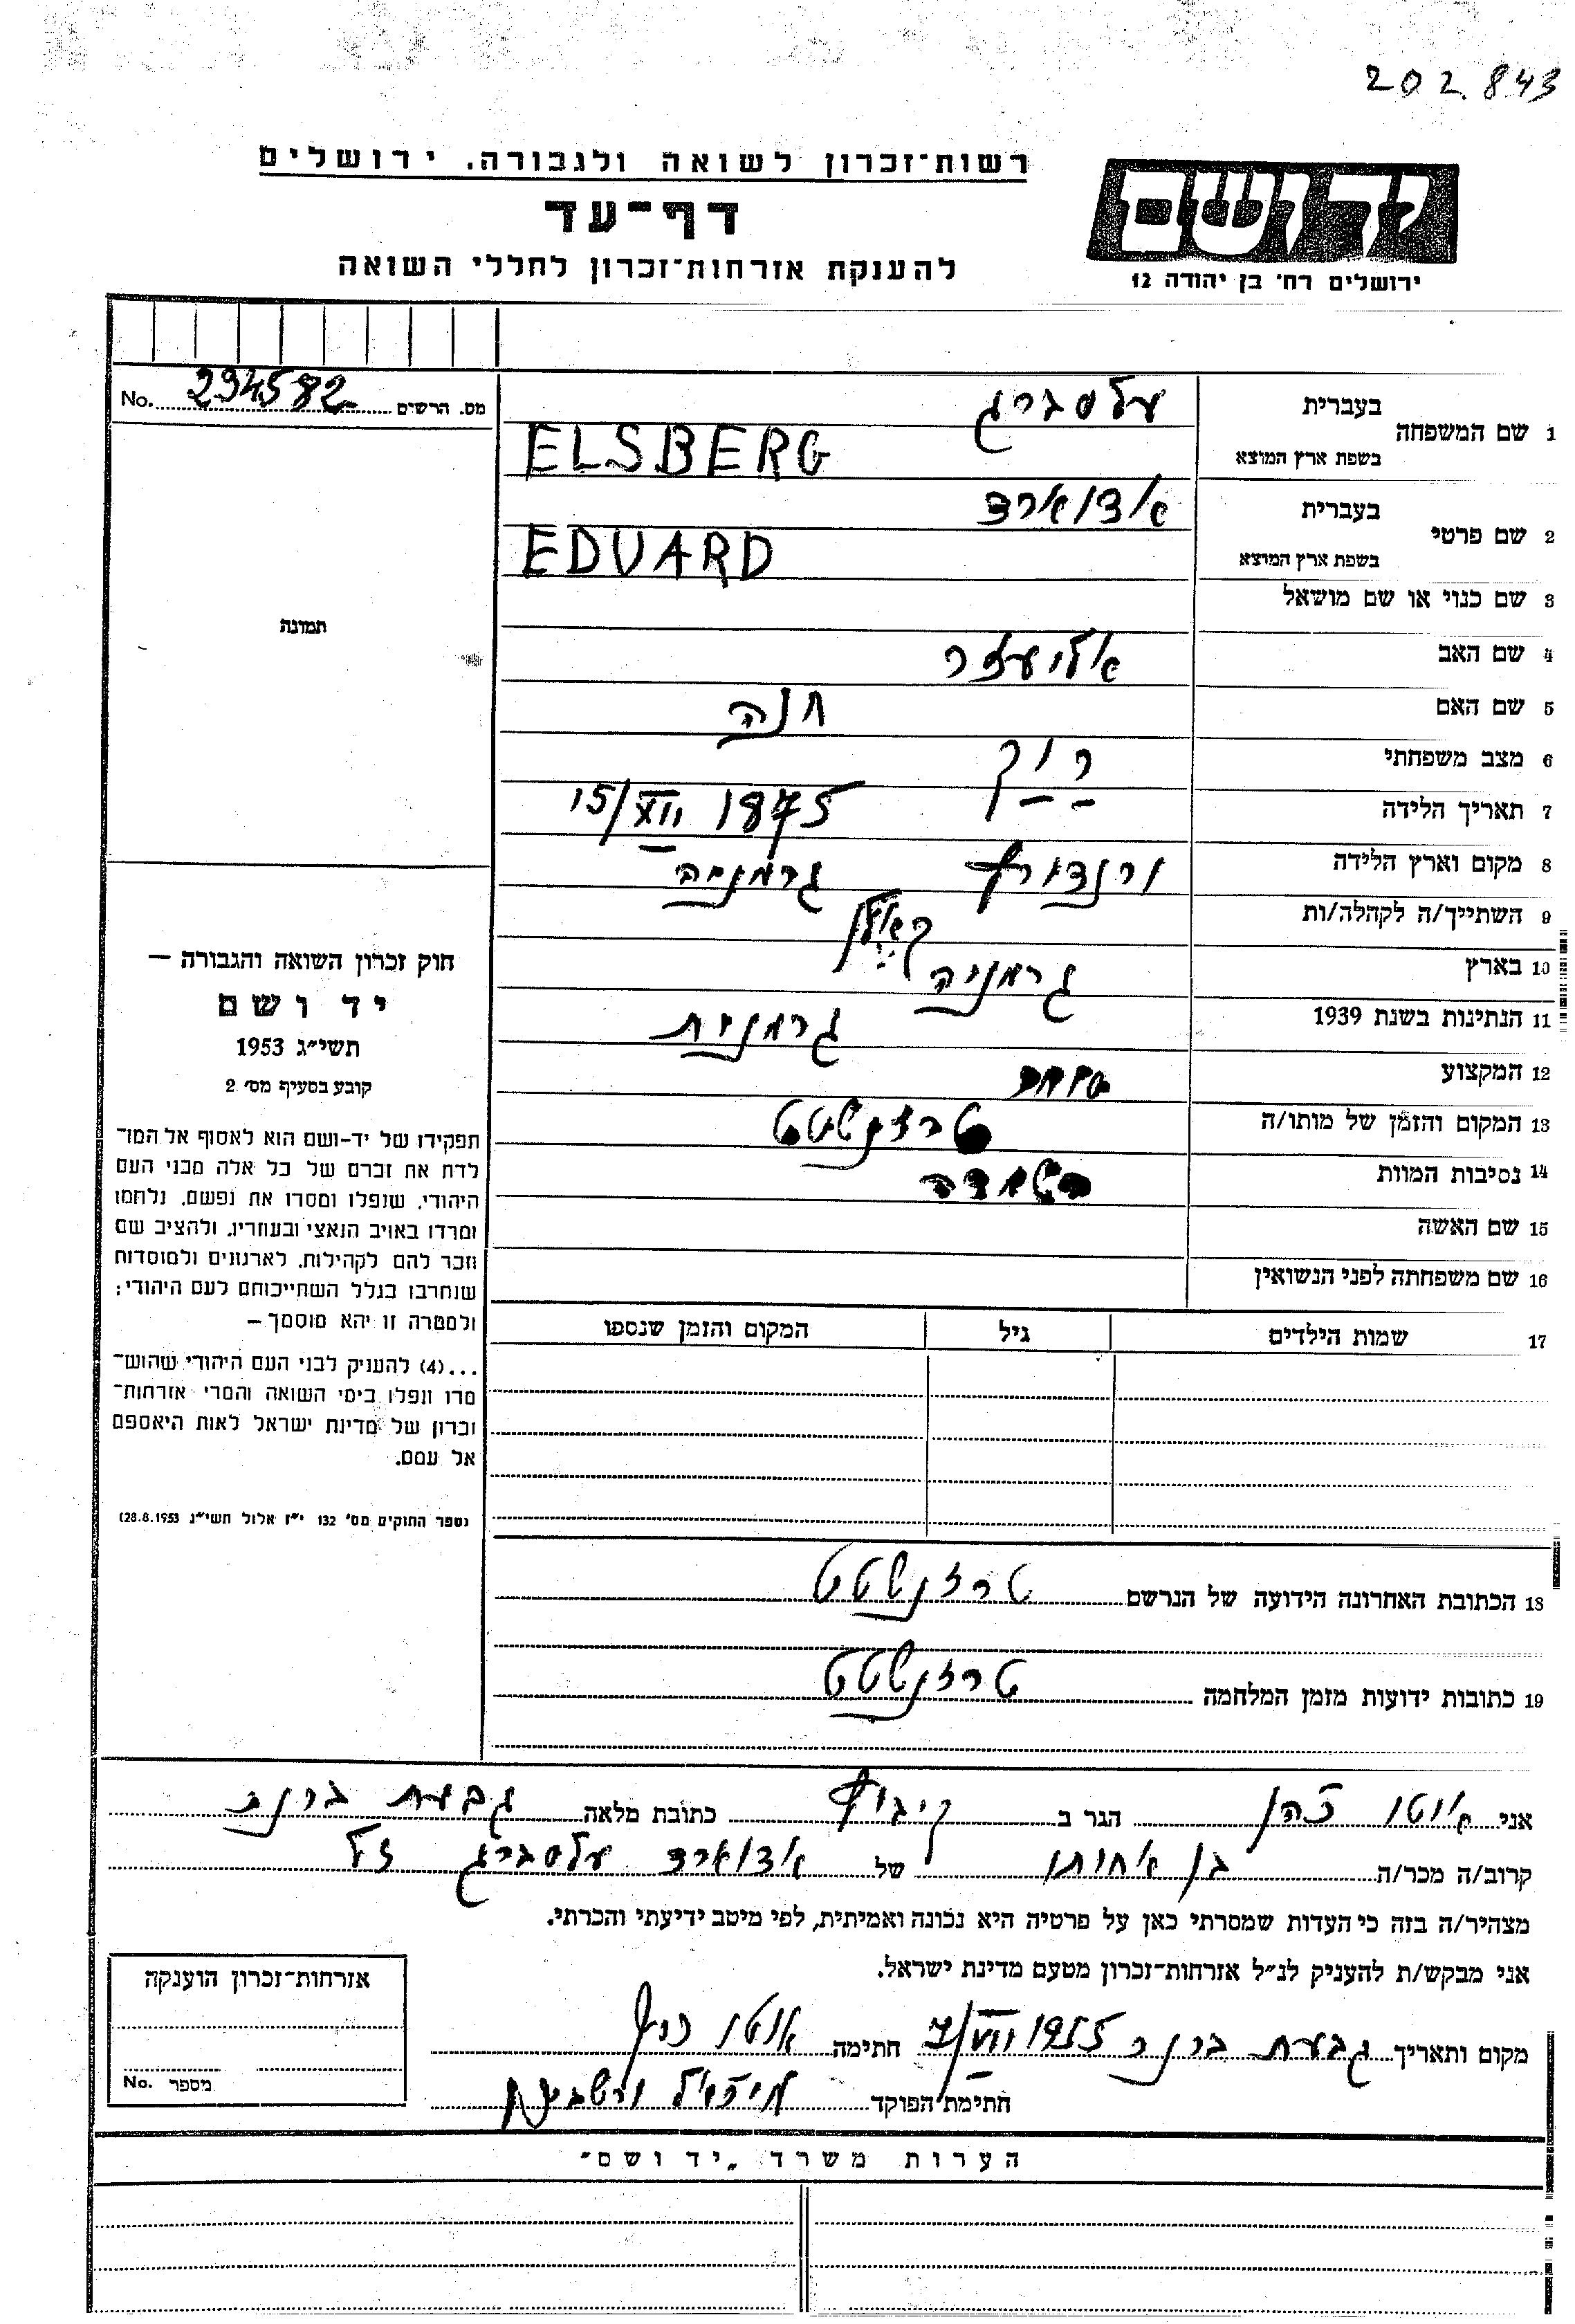 202.843
רשות־זכרון לשואה ולגבורה. ירושלים
יד ושם
דף־עד
להענקת אזרחות־זכרון לחללי השואה
ירושלים רח' בן יהודה 12
מס. הרשים 234582 No.
1 שם המשפחה
בעברית עלסברג
בשפת ארץ המוצא ELSBERG
2 שם פרטי
בעברית אדוארד
בשפת ארץ המוצא EDUARD
3 שם כנוי או שם מושאל
תמונה
4 שם האב אליעזר
5 שם האם חנה
6 מצב משפחתי רווק
7 תאריך הלידה 15/XII 1875
8 מקום וארץ הלידה ורנדורף גרמניה
9 השתייך/ה לקהלה/ות קאלן
10 בארץ גרמניה
11 הנתינות בשנת 1939 גרמנית
12 המקצוע סוחר
13 המקום והזמן של מותו/ה טרזנשטט
14 נסיבות המוות השמדה
15 שם האשה
16 שם משפחתה לפני הנשואין
17 שמות הילדים גיל המקום והזמן שנספו
חוק זכרון השואה והגבורה —
יד ושם
תשי"ג 1953
קובע בסעיף מס' 2
תפקידו של יד-ושם הוא לאסוף אל המו־
לדת את זכרם של כל אלה מבני העם
היהודי, שנפלו ומסרו את נפשם, נלחמו
ומרדו באויב הנאצי ובעוזריו, ולהציב שם
וזכר להם לקהילות, לארגונים ולמוסדות
שנחרבו בגלל השתייכותם לעם היהודי;
ולמטרה זו יהא מוסמך —
...(4) להעניק לבני העם היהודי שהוש־
מדו ונפלו בימי השואה והמרי אזרחות־
זכרון של מדינת ישראל לאות היאספם
אל עמם.
(ספר החוקים מס' 132 י"ז אלול תשי"ג 28.8.1953)
18 הכתובת האחרונה הידועה של הנרשם טרזנשטט
19 כתובות ידועות מזמן המלחמה טרזנשטט
אני אוטו כהן הגר ב קיבוץ כתובת מלאה גבעת ברנר
קרוב/ה מכר/ה בן אחותו של אדוארד עלסברג ז"ל
מצהיר/ה בזה כי העדות שמסרתי כאן על פרטיה היא נכונה ואמיתית, לפי מיטב ידיעתי והכרתי.
אני מבקש/ת להעניק לנ"ל אזרחות־זכרון מטעם מדינת ישראל.
מקום ותאריך גבעת ברנר 7/VII 1955 חתימה אוטו כהן
חתימת הפוקד
אזרחות־זכרון הוענקה
מספר No.
הערות משרד „יד ושם"